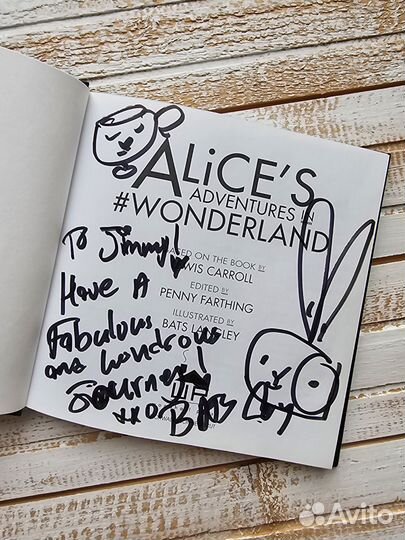 ALiCE'S
ADVENTURES IN
#WONDERLAND
BASED ON THE BOOK BY
LEWIS CARROLL
EDITED BY
PENNY FARTHING
ILLUSTRATED BY
BATS LANGLEY
To Jimmy!
Have A
Fabulous
and wondrous
Journey!
xxo BATS
Avito